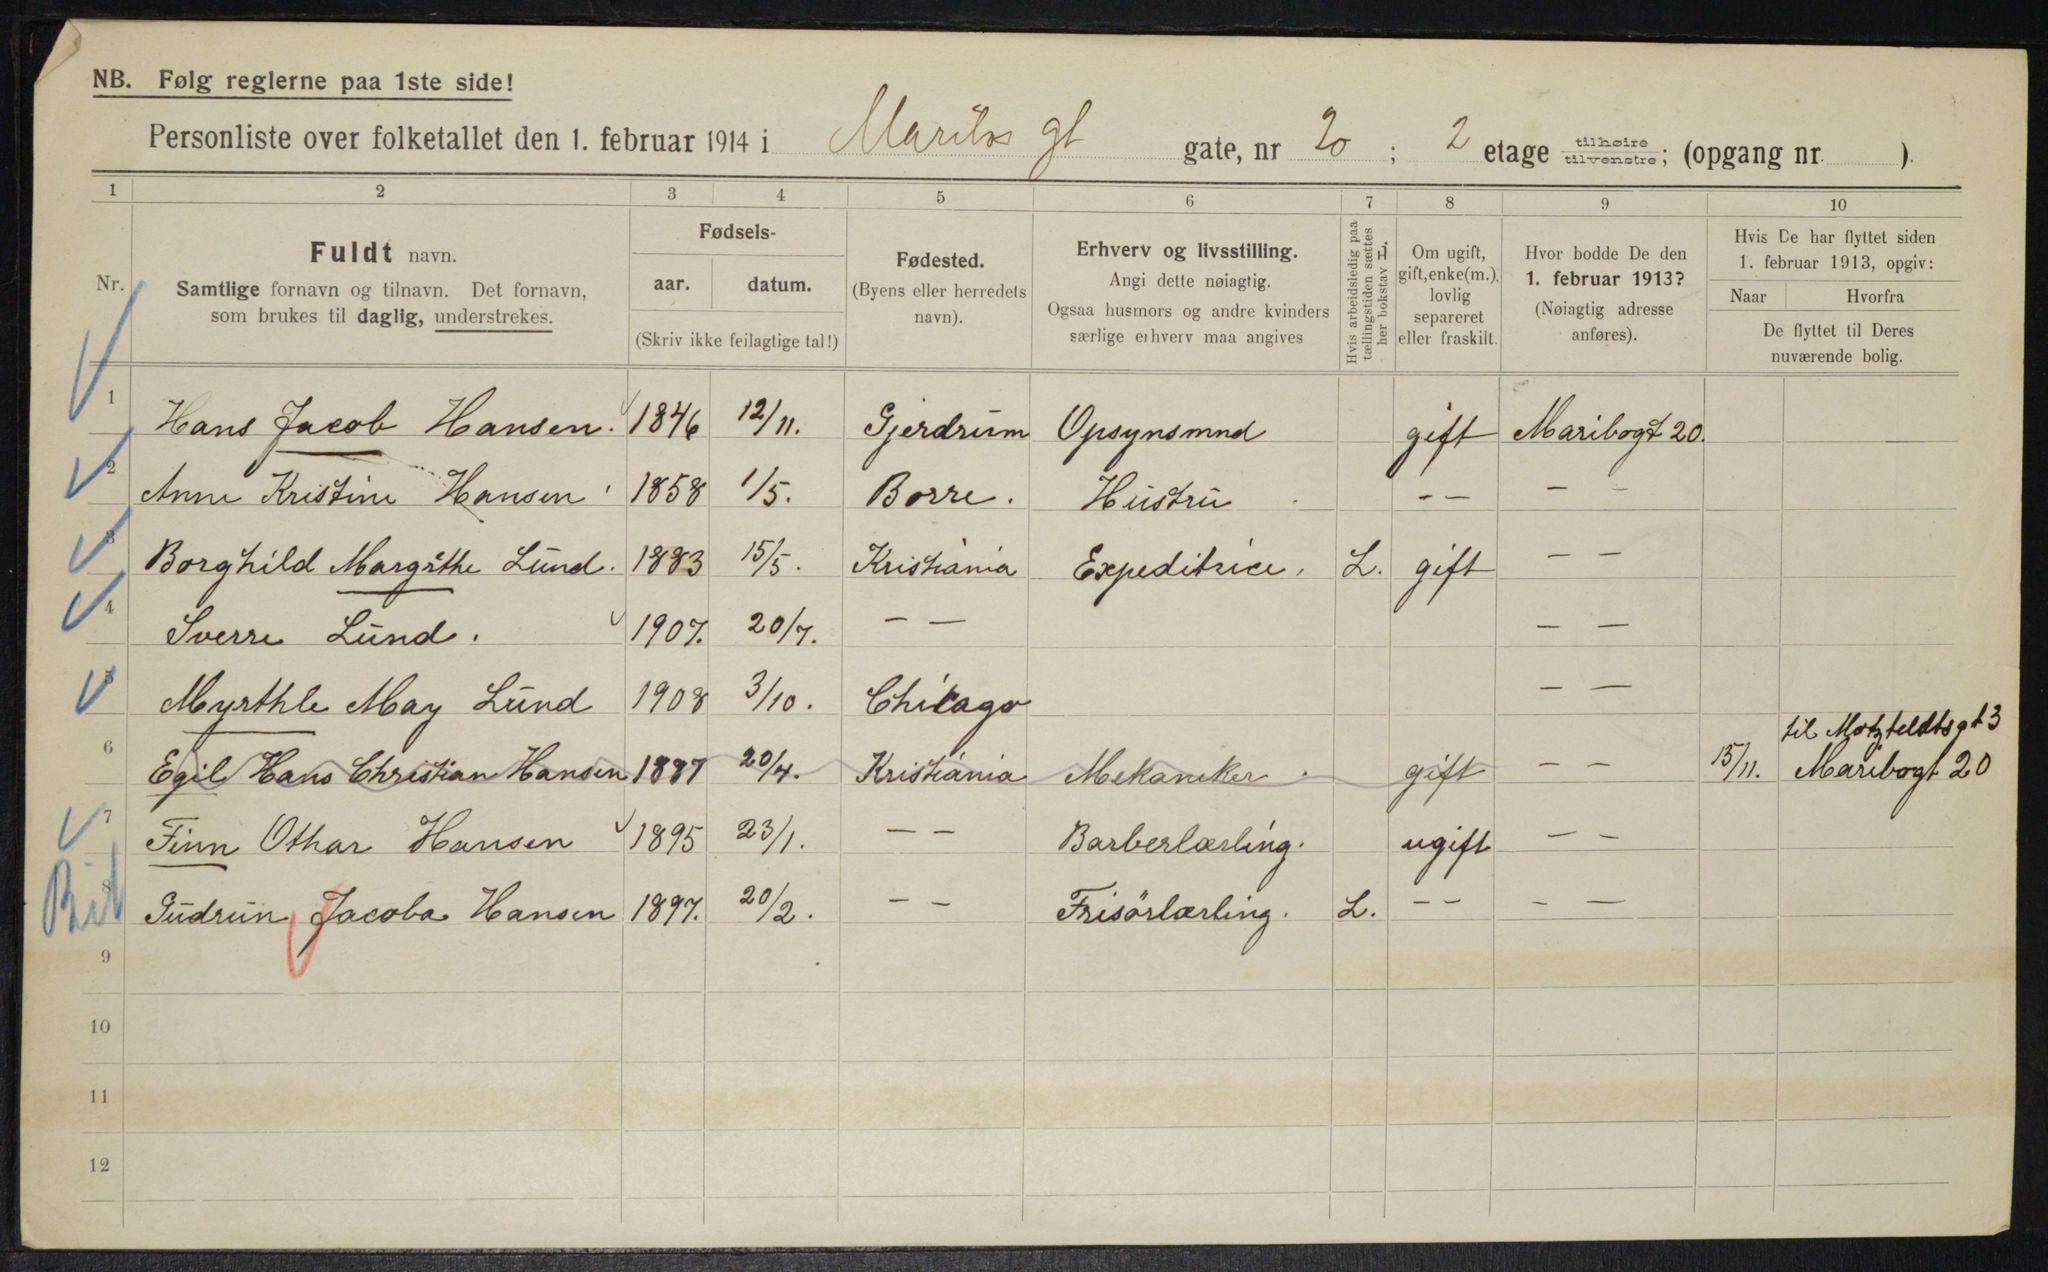 NB. Følg reglerne paa 1ste side!
Personliste over folketallet den 1. februar 1914 i Maribos gt gate, nr 20 ; 2 etage tilhøire tilvenstre; (opgang nr. ).
1 2 3 4 5 6 7 8 9 10
Nr.
Fuldt navn.
Samtlige fornavn og tilnavn. Det fornavn,
som brukes til daglig, understrekes.
Fødsels-
aar. datum.
(Skriv ikke feilagtige tal!)
Fødested.
(Byens eller herredets
navn).
Erhverv og livsstilling.
Angi dette nøiagtig.
Ogsaa husmors og andre kvinders
særlige erhverv maa angives
Hvis arbeidsledig paa
tællingstiden sættes
her bokstav L.
Om ugift,
gift, enke(m.),
lovlig
separeret
eller fraskilt.
Hvor bodde De den
1. februar 1913?
(Nøiagtig adresse
anføres).
Hvis De har flyttet siden
1. februar 1913, opgiv:
Naar Hvorfra
De flyttet til Deres
nuværende bolig.
1 Hans Jacob Hansen. 1846 12/11. Gjerdrum Opsynsmnd gift Maribogt 20.
2 Anne Kristine Hansen 1858 1/5. Borre. Hustru - - - -
3 Borghild Margrthe Lund. 1883 15/5. Kristiania Expeditrice. L. gift - -
4 Sverre Lund. 1907. 20/7. - - - -
5 Myrthle May Lund 1908 3/10. Chicago - -
til Motzfeldtsgt 3
6 Egil Hans Christian Hansen 1887 20/4. Kristiania Mekaniker gift - - 15/11. Maribogt 20
7 Finn Othar Hansen 1895 23/1. - - Barberlærling. ugift - -
8 Gudrun Jacoba Hansen 1897. 20/2. - - Frisörlærling. L. - - - -
9
10
11
12